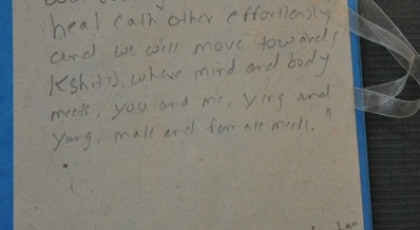 heal each other effortlessly
and we will move towards
Kshitij, where mind and body
meets, you and me, ying and
yang, male and female meets."